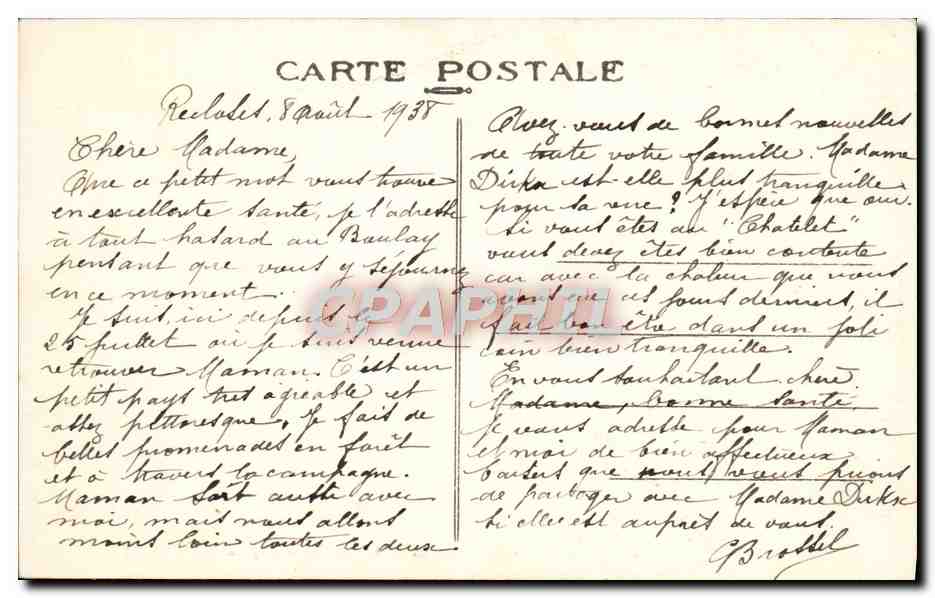 CARTE POSTALE
Recloses, 8 août 1938
Chère Madame,
Que ce petit mot vous trouve
en excellente santé, je l'adresse
à tout hasard au Boulay
pensant que vous y séjournez
en ce moment.
Je suis ici depuis le
25 juillet où je suis venue
retrouver Maman. C'est un
petit pays très agréable et
assez pittoresque. Je fais de
belles promenades en forêt
et à travers la campagne.
Maman sort aussi avec
moi, mais nous allons
moins loin toutes les deux
Avez-vous de bonnes nouvelles
de toute votre famille. Madame
Dirkx est-elle plus tranquille
pour sa vue ? J'espère que oui.
Si vous êtes au "Chatelet"
vous devez êtes bien contente
car avec la chaleur que nous
avons eue ces jours derniers, il
fait bon être dans un joli
coin bien tranquille.
En vous souhaitant chère
Madame, bonne santé,
je vous adresse pour Maman
et moi de bien affectueux
baisers que nous vous prions
de partager avec Madame Dirkx
si elle est auprès de vous.
CBrossel
CPAPHIL